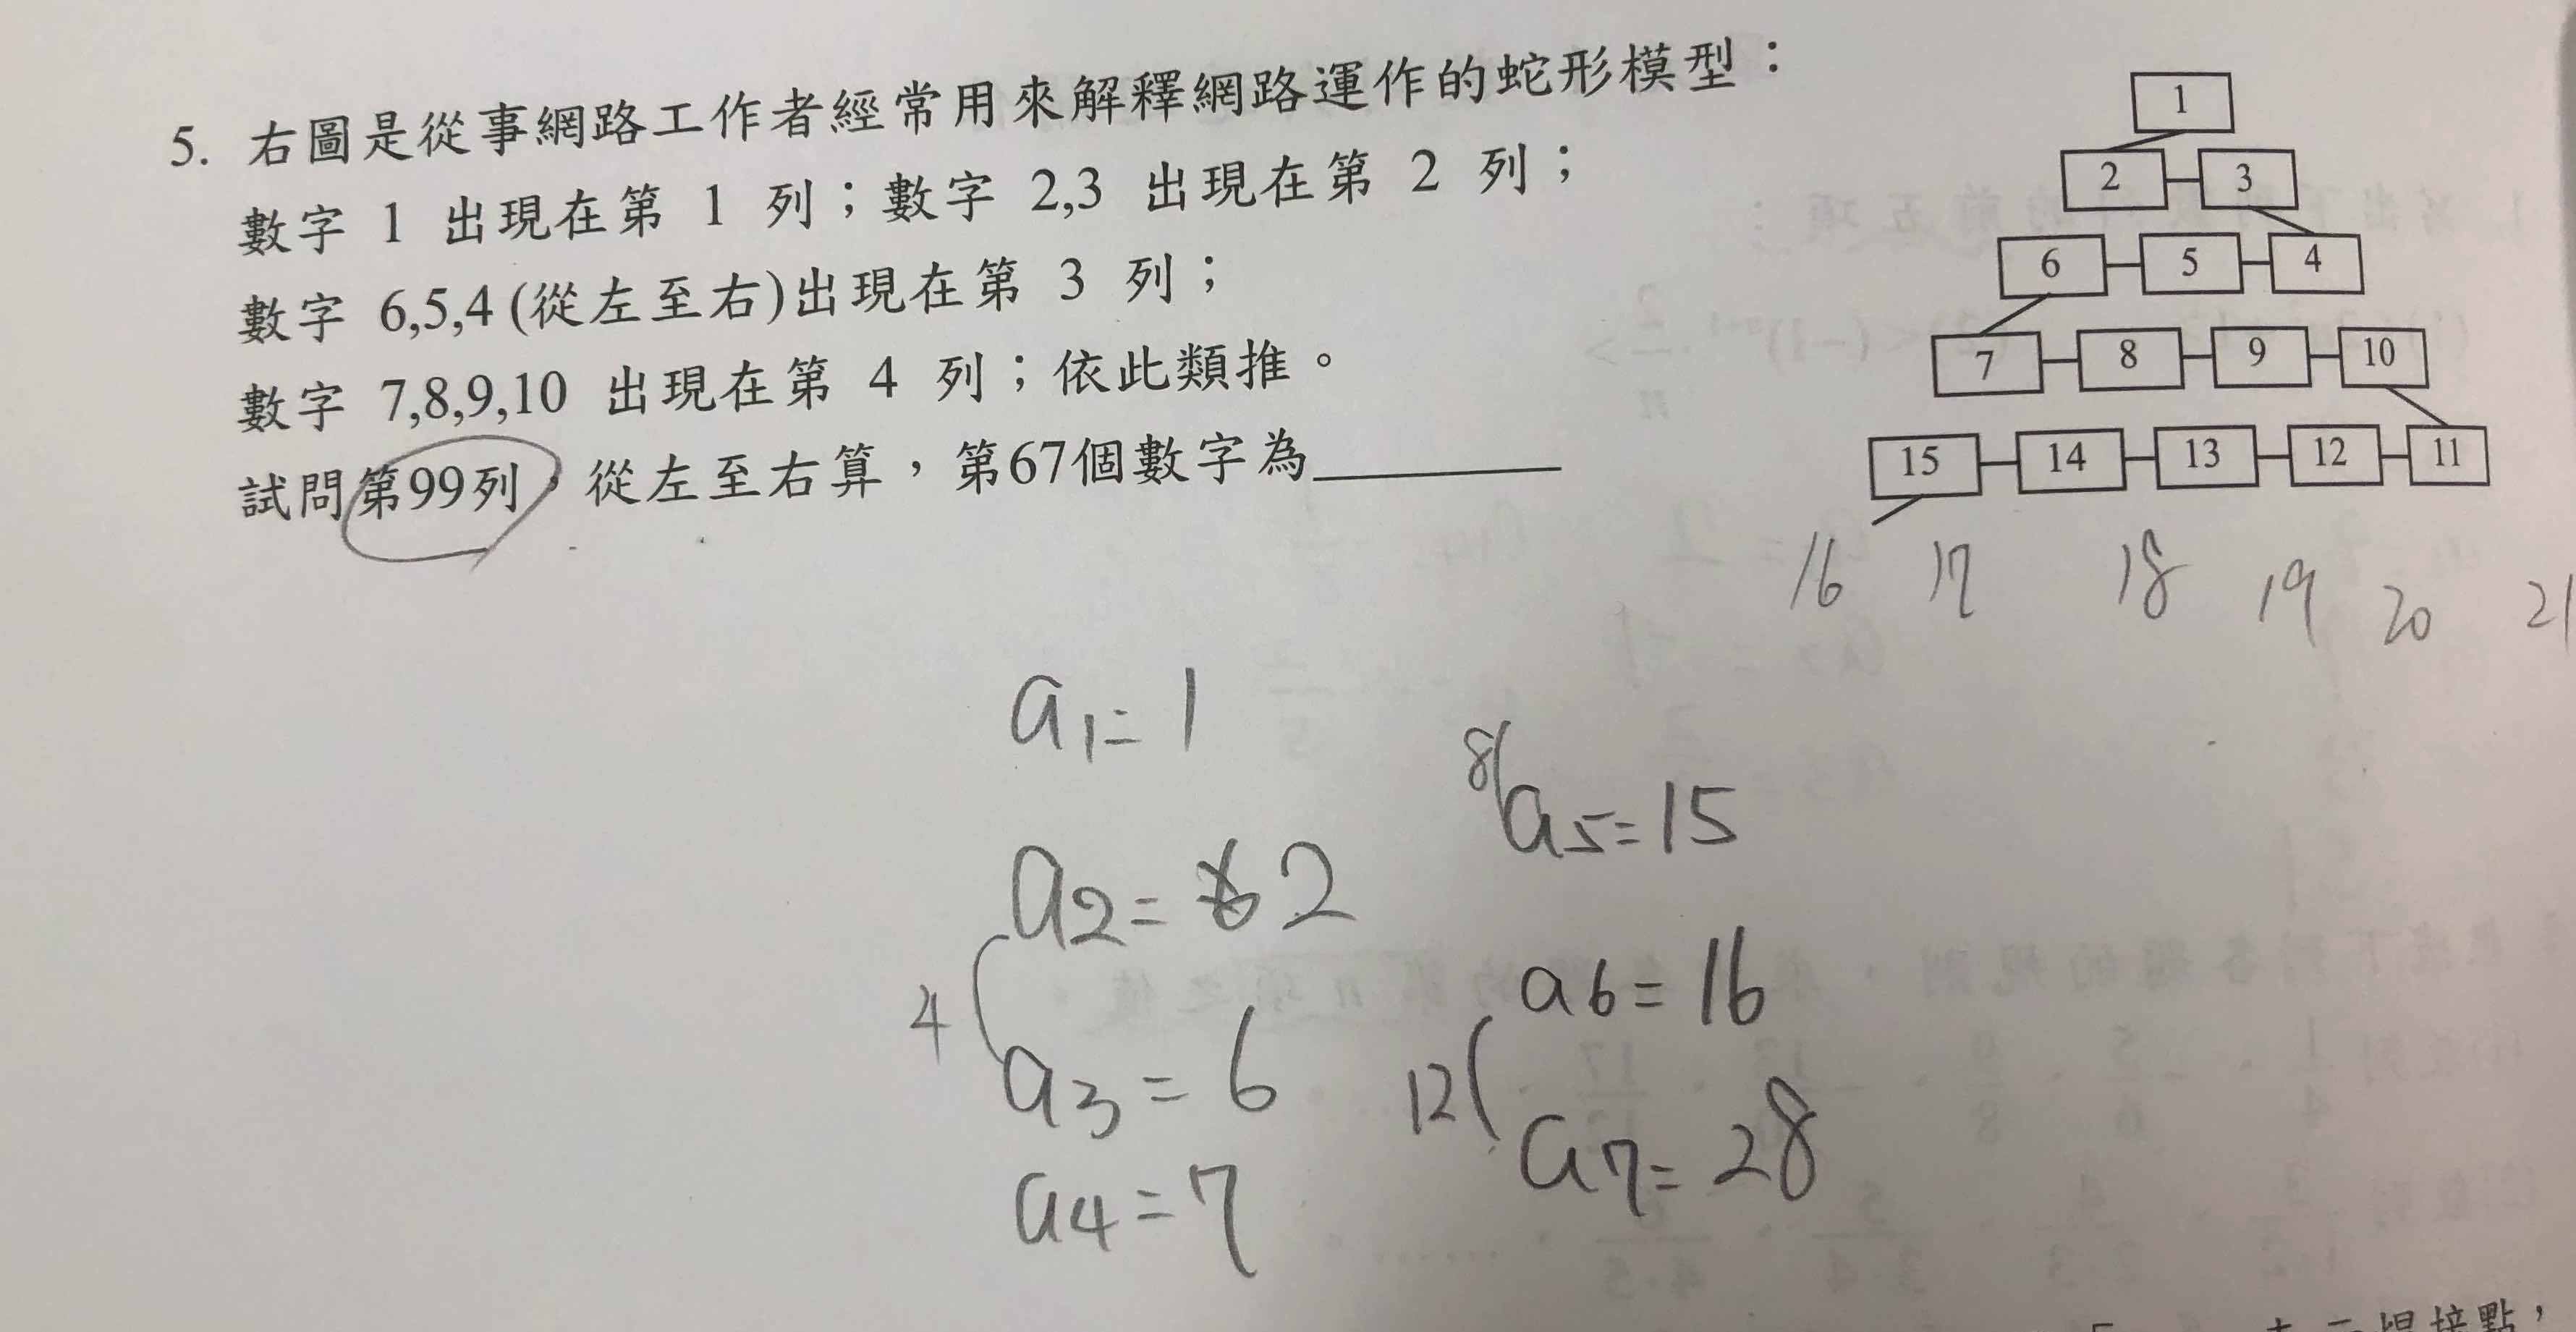 5. 右圖是從事網路工作者經常用來解釋網路運作的蛇形模型：
數字 1 出現在第 1 列；數字 2,3 出現在第 2 列；
數字 6,5,4 (從左至右)出現在第 3 列；
數字 7,8,9,10 出現在第 4 列；依此類推。
試問第99列，從左至右算，第67個數字為
1
2 3
6 5 4
7 8 9 10
15 14 13 12 11
16 17 18 19 20 21
a1=1
a2= 2
4
a3=6
a4=7
8
a5=15
a6=16
12
a7=28